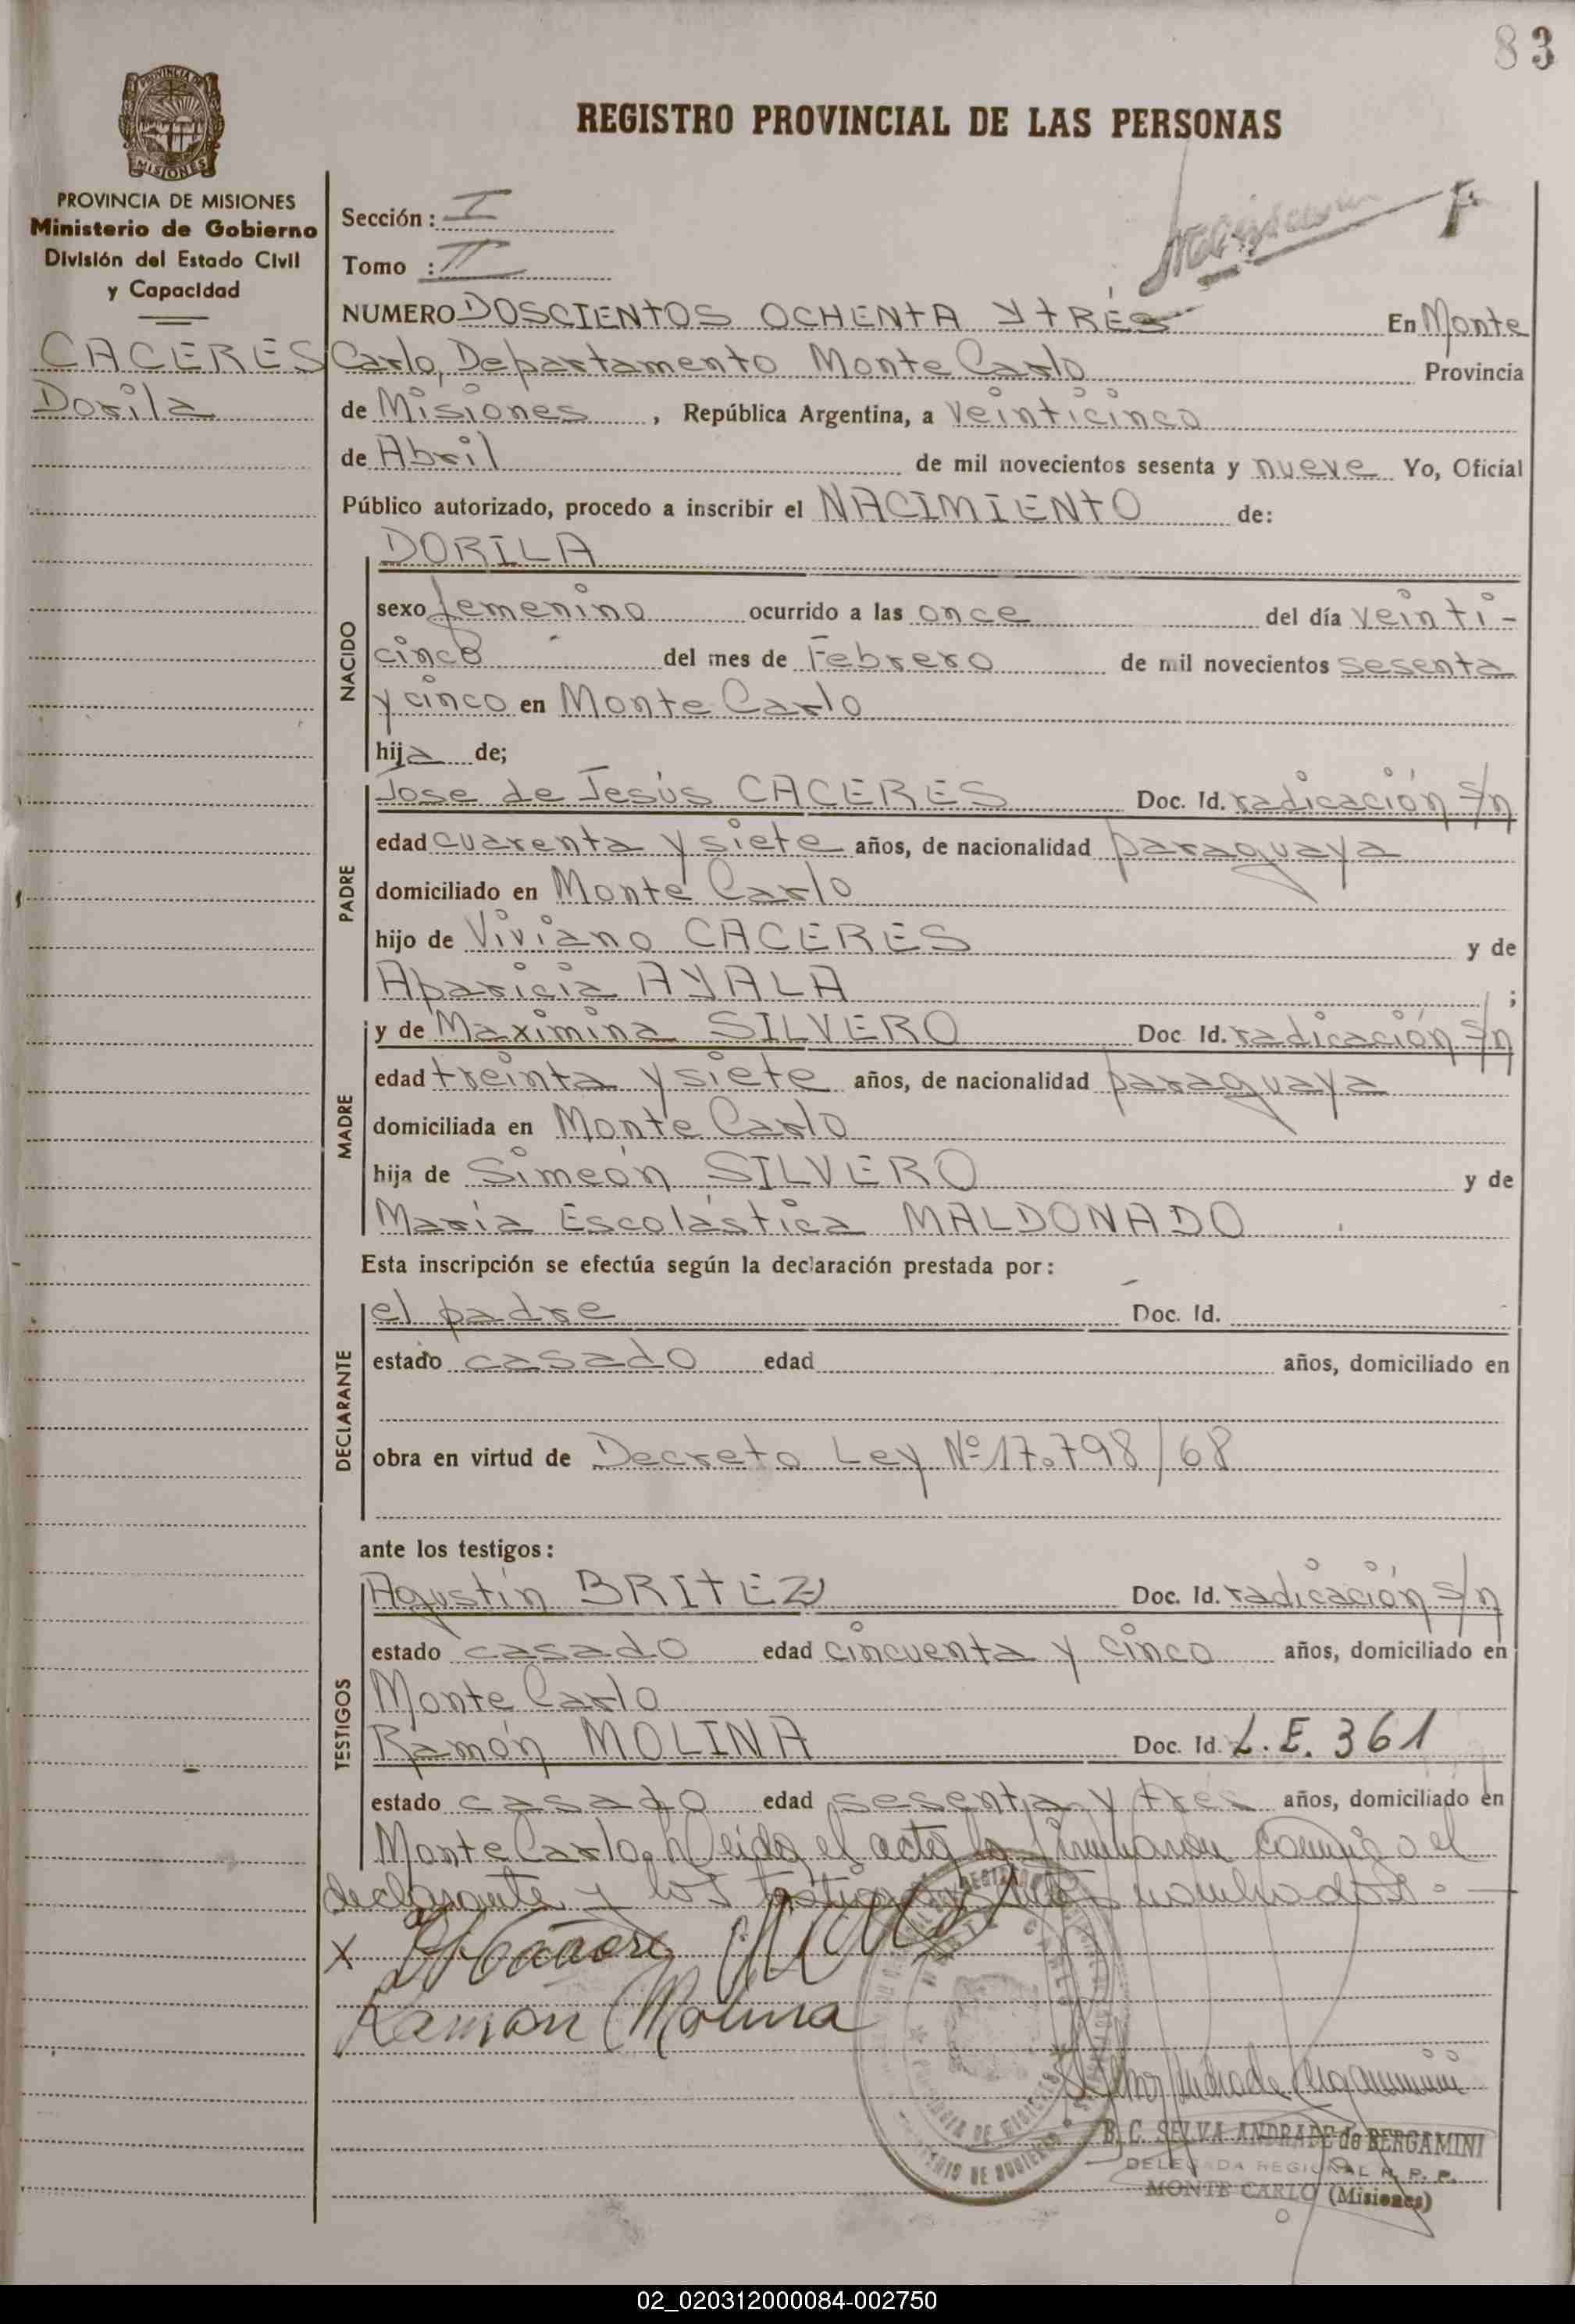 83
REGISTRO PROVINCIAL DE LAS PERSONAS
PROVINCIA DE
MISIONES
PROVINCIA DE MISIONES
Ministerio de Gobierno
División del Estado Civil
y Capacidad
CACERES
Dorila
Sección: I
Tomo : II
NUMERO DOSCIENTOS OCHENTA Y TRES En Monte
Carlo, Departamento Monte Carlo Provincia
de Misiones, República Argentina, a veinticinco
de Abril de mil novecientos sesenta y nueve Yo, Oficial
Público autorizado, procedo a inscribir el NACIMIENTO de:
DORILA
NACIDO
sexo femenino ocurrido a las once del día veinti-
cinco del mes de Febrero de mil novecientos sesenta
y cinco en Monte Carlo
hija de;
PADRE
Jose de Jesús CACERES Doc. Id. radicación s/n
edad cuarenta y siete años, de nacionalidad paraguaya
domiciliado en Monte Carlo
hijo de Viviano CACERES y de
Aparicia AYALA ;
MADRE
y de Maximina SILVERO Doc Id. radicación s/n
edad treinta y siete años, de nacionalidad paraguaya
domiciliada en Monte Carlo
hija de Simeón SILVERO y de
María Escolástica MALDONADO
Esta inscripción se efectúa según la declaración prestada por:
DECLARANTE
el padre Doc. Id.
estado casado edad años, domiciliado en
obra en virtud de Decreto Ley Nº 17.798/68
ante los testigos:
TESTIGOS
Agustín BRITEZ Doc. Id. radicación s/n
estado casado edad cincuenta y cinco años, domiciliado en
Monte Carlo
Ramón MOLINA Doc. Id. L.E. 361
estado casado edad sesenta y tres años, domiciliado en
Monte Carlo. Leida el acta la firmaron conmigo el
declarante y los testigos nombrados.
X
Ramon Molina
B. C. SELVA ANDRADE de BERGAMINI
DELEGADA REGIONAL R. P. P.
MONTE CARLO (Misiones)
02_020312000084-002750